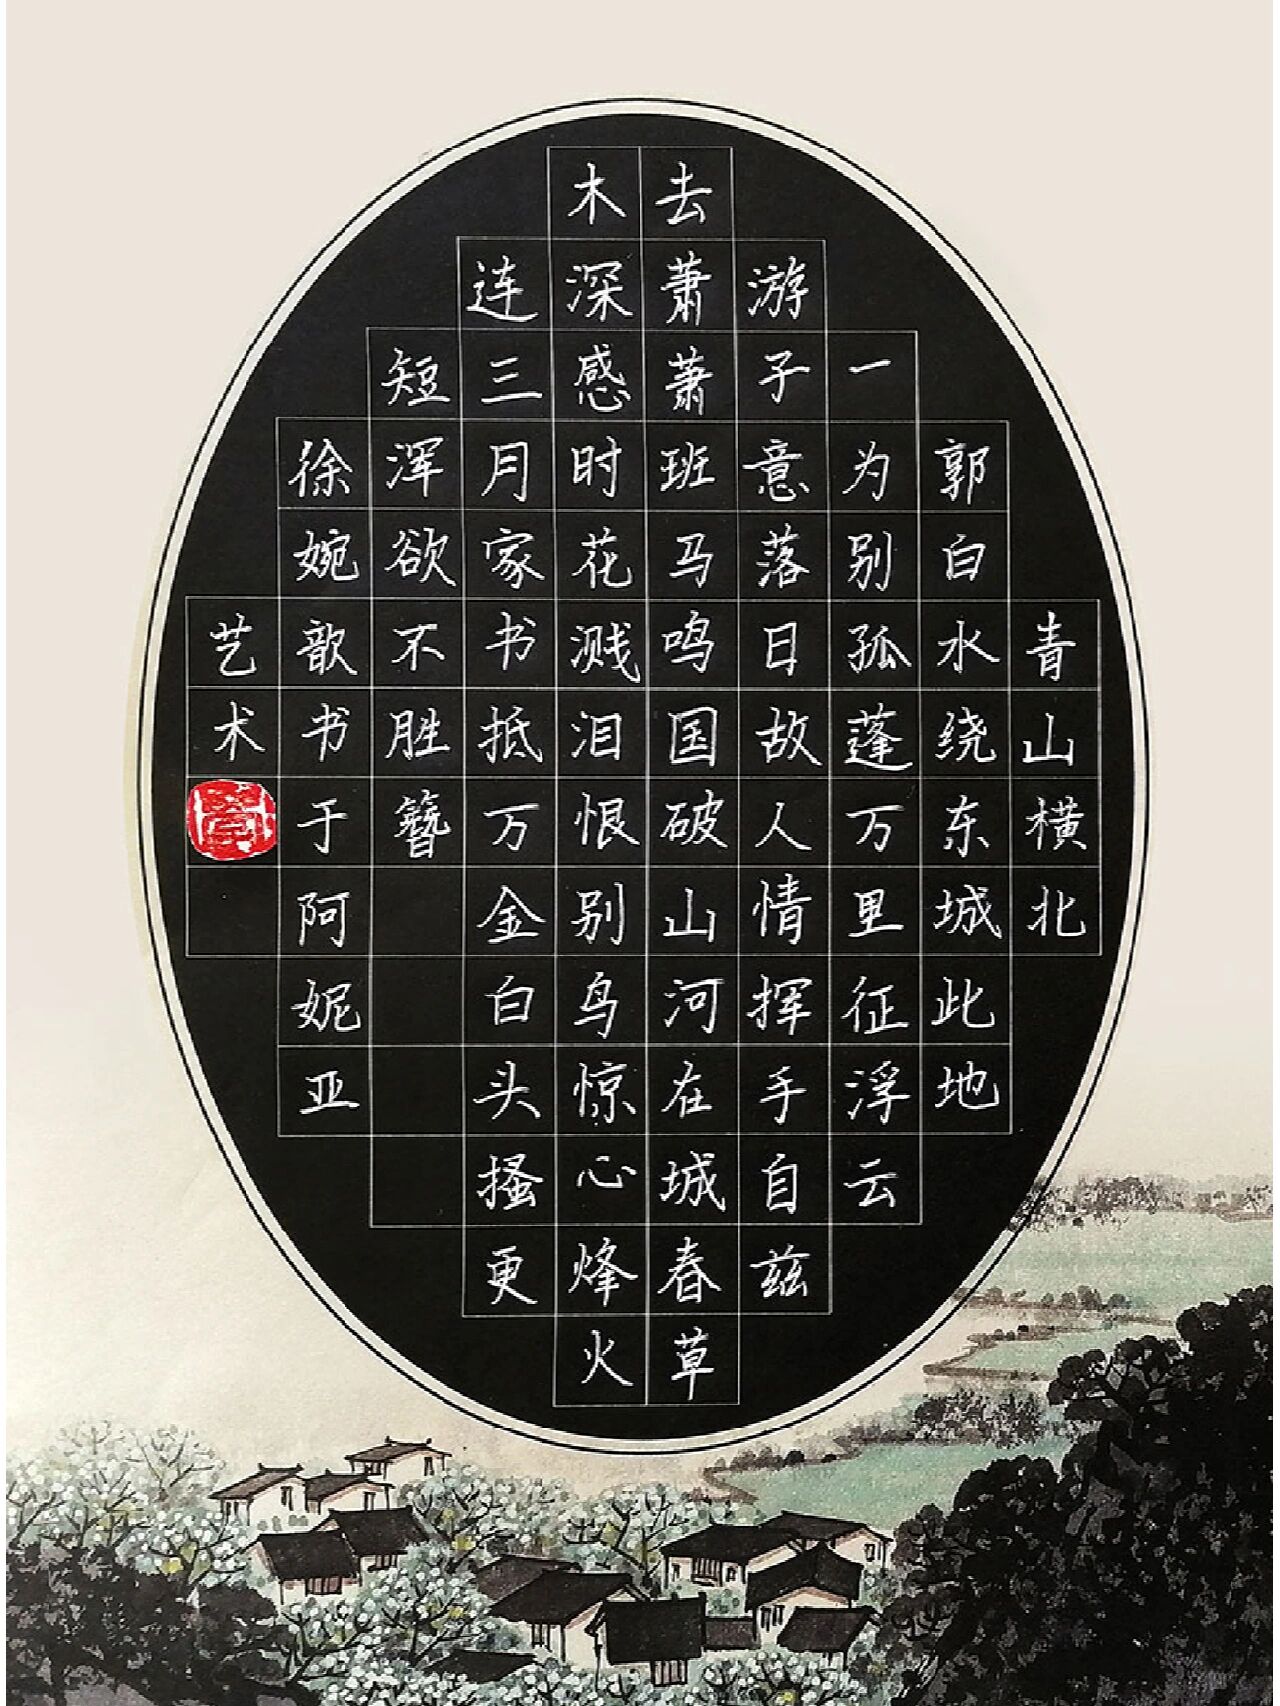 青山横北
郭白水绕东城此地
一为别孤蓬万里征浮云
游子意落日故人情挥手自兹
去萧萧班马鸣国破山河在城春草
木深感时花溅泪恨别鸟惊心烽火
连三月家书抵万金白头搔更
短浑欲不胜簪
徐婉歆书于阿妮亚
艺术